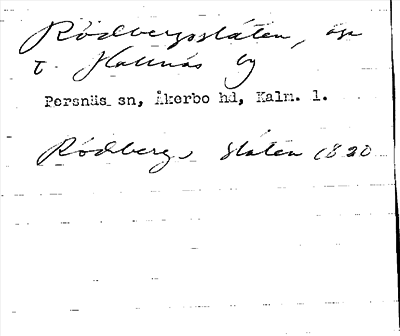 Rödbergsslåten, äga
t. Hallnäs by
Persnäs sn, Åkerbo hd, Kalm. l.
Rödbergs slåten 1820